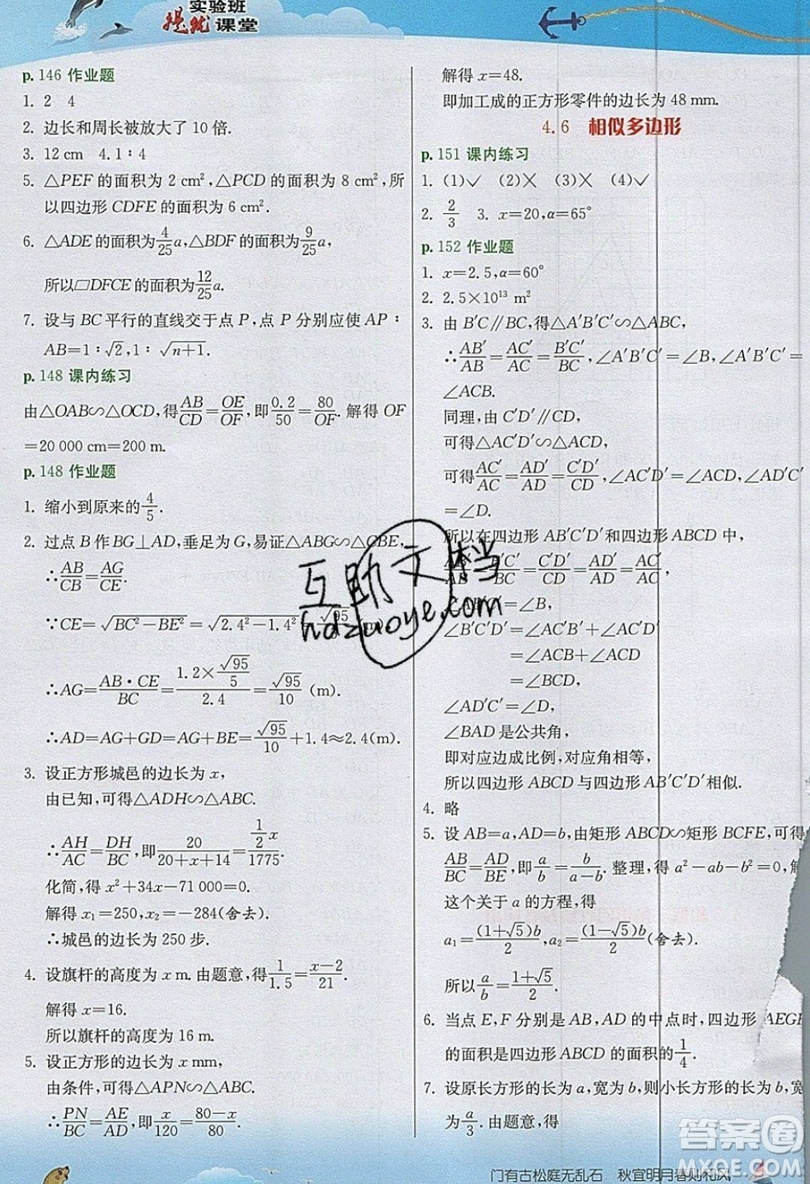 实验班
提优课堂
p.146 作业题
1. 2 4
2. 边长和周长被放大了 10 倍.
3. 12 cm 4. 1∶4
5. △PEF 的面积为 2 cm²,△PCD 的面积为 8 cm²,所
以四边形 CDFE 的面积为 6 cm².
6. △ADE 的面积为 4/25 a,△BDF 的面积为 9/25 a,
所以▱DFCE 的面积为 12/25 a.
7. 设与 BC 平行的直线交于点 P,点 P 分别应使 AP∶
AB=1∶√2,1∶√(n+1).
p.148 课内练习
由△OAB∽△OCD,得 AB/CD=OE/OF,即 0.2/50=80/OF. 解得 OF
=20 000 cm=200 m.
p.148 作业题
1. 缩小到原来的 4/5.
2. 过点 B 作 BG⊥AD,垂足为 G,易证△ABG∽△CBE,
∴AB/CB=AG/CE.
∵CE=√(BC²-BE²)=√(2.4²-1.4²)=√95/5
∴AG=AB·CE/BC=(1.2×√95/5)/2.4=√95/10 (m).
∴AD=AG+GD=AG+BE=√95/10+1.4≈2.4(m).
3. 设正方形城邑的边长为 x,
由已知,可得△ADH∽△ABC.
∴AH/AC=DH/BC,即 20/(20+x+14)=(1/2 x)/1775.
化简,得 x²+34x-71 000=0.
解得 x₁=250,x₂=-284(舍去).
∴城邑的边长为 250 步.
4. 设旗杆的高度为 x m. 由题意,得 1/1.5=(x-2)/21.
解得 x=16.
所以旗杆的高度为 16 m.
5. 设正方形的边长为 x mm,
由条件,可得△APN∽△ABC,
∴PN/BC=AE/AD,即 x/120=(80-x)/80.
解得 x=48.
即加工成的正方形零件的边长为 48 mm.
4.6 相似多边形
p.151 课内练习
1. (1)✓ (2)✕ (3)✕ (4)✓
2. 2/3 3. x=20,α=65°
p.152 作业题
1. x=2.5,α=60°
2. 2.5×10¹³ m²
3. 由 B′C′∥BC,得△A′B′C′∽△ABC,
∴AB′/AB=AC′/AC=B′C′/BC,∠A′B′C′=∠B,∠A′C′B′=
∠ACB.
同理,由 C′D′∥CD,
可得△AC′D′∽△ACD,
可得 AC′/AC=AD′/AD=C′D′/CD,∠AC′D′=∠ACD,∠AD′C′
=∠D.
所以在四边形 AB′C′D′和四边形 ABCD 中,
AB′/AB=B′C′/BC=C′D′/CD=AD′/AD,
=∠B,
∠B′C′D′=∠AC′B′+∠AC′D′
=∠ACB+∠ACD
=∠BCD,
∠AD′C′=∠D,
∠BAD 是公共角,
即对应边成比例,对应角相等,
所以四边形 ABCD 与四边形 AB′C′D′相似.
4. 略
5. 设 AB=a,AD=b,由矩形 ABCD∽矩形 BCFE,可得
AB/BC=AD/BE,即 a/b=b/(a-b). 整理,得 a²-ab-b²=0,解
这个关于 a 的方程,得
a₁=(1+√5)b/2,a₂=(1-√5)b/2(舍去).
所以 a/b=(1+√5)/2.
6. 当点 E,F 分别是 AB,AD 的中点时,四边形 AEGF
的面积是四边形 ABCD 的面积的 1/4.
7. 设原长方形的长为 a,宽为 b,则小长方形的长为 b,宽
为 a/3. 由题意,得
互助文档
hdzuoye.com
门有古松庭无乱石 秋宜明月春则和风
答案圈
MXQE.COM